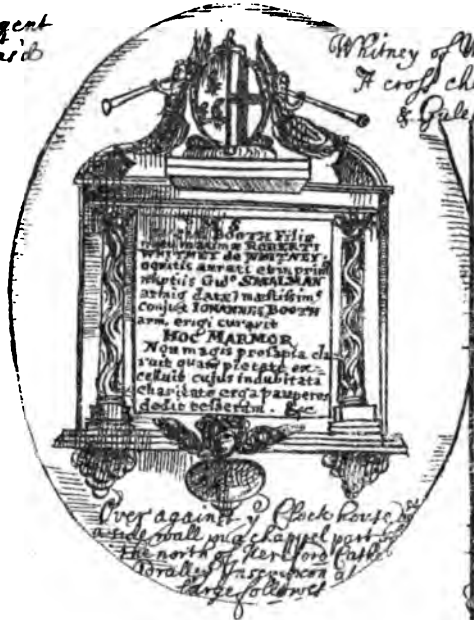 gent
Whitney of W
A cross che
& Gule
BOOTH Filiæ
natu maximæ ROBERTI
WHITNEY de WHITNEY,
equitis aurati et in primis
nuptiis Gul° SMALMAN
armig datæ) mæstissim⁹
conjux IOHANNES BOOTH
arm. erigi curavit
HOC MARMOR
Non magis prosapia cla-
ruit quam pietate ex-
celluit cujus indubitata
charitate erga pauperes
dedit tesseram. &c
Over against yͤ Clock house
a side wall in a chappel part
the north of Hereford Cathe
drall yͤ Inscripcon at
large followes